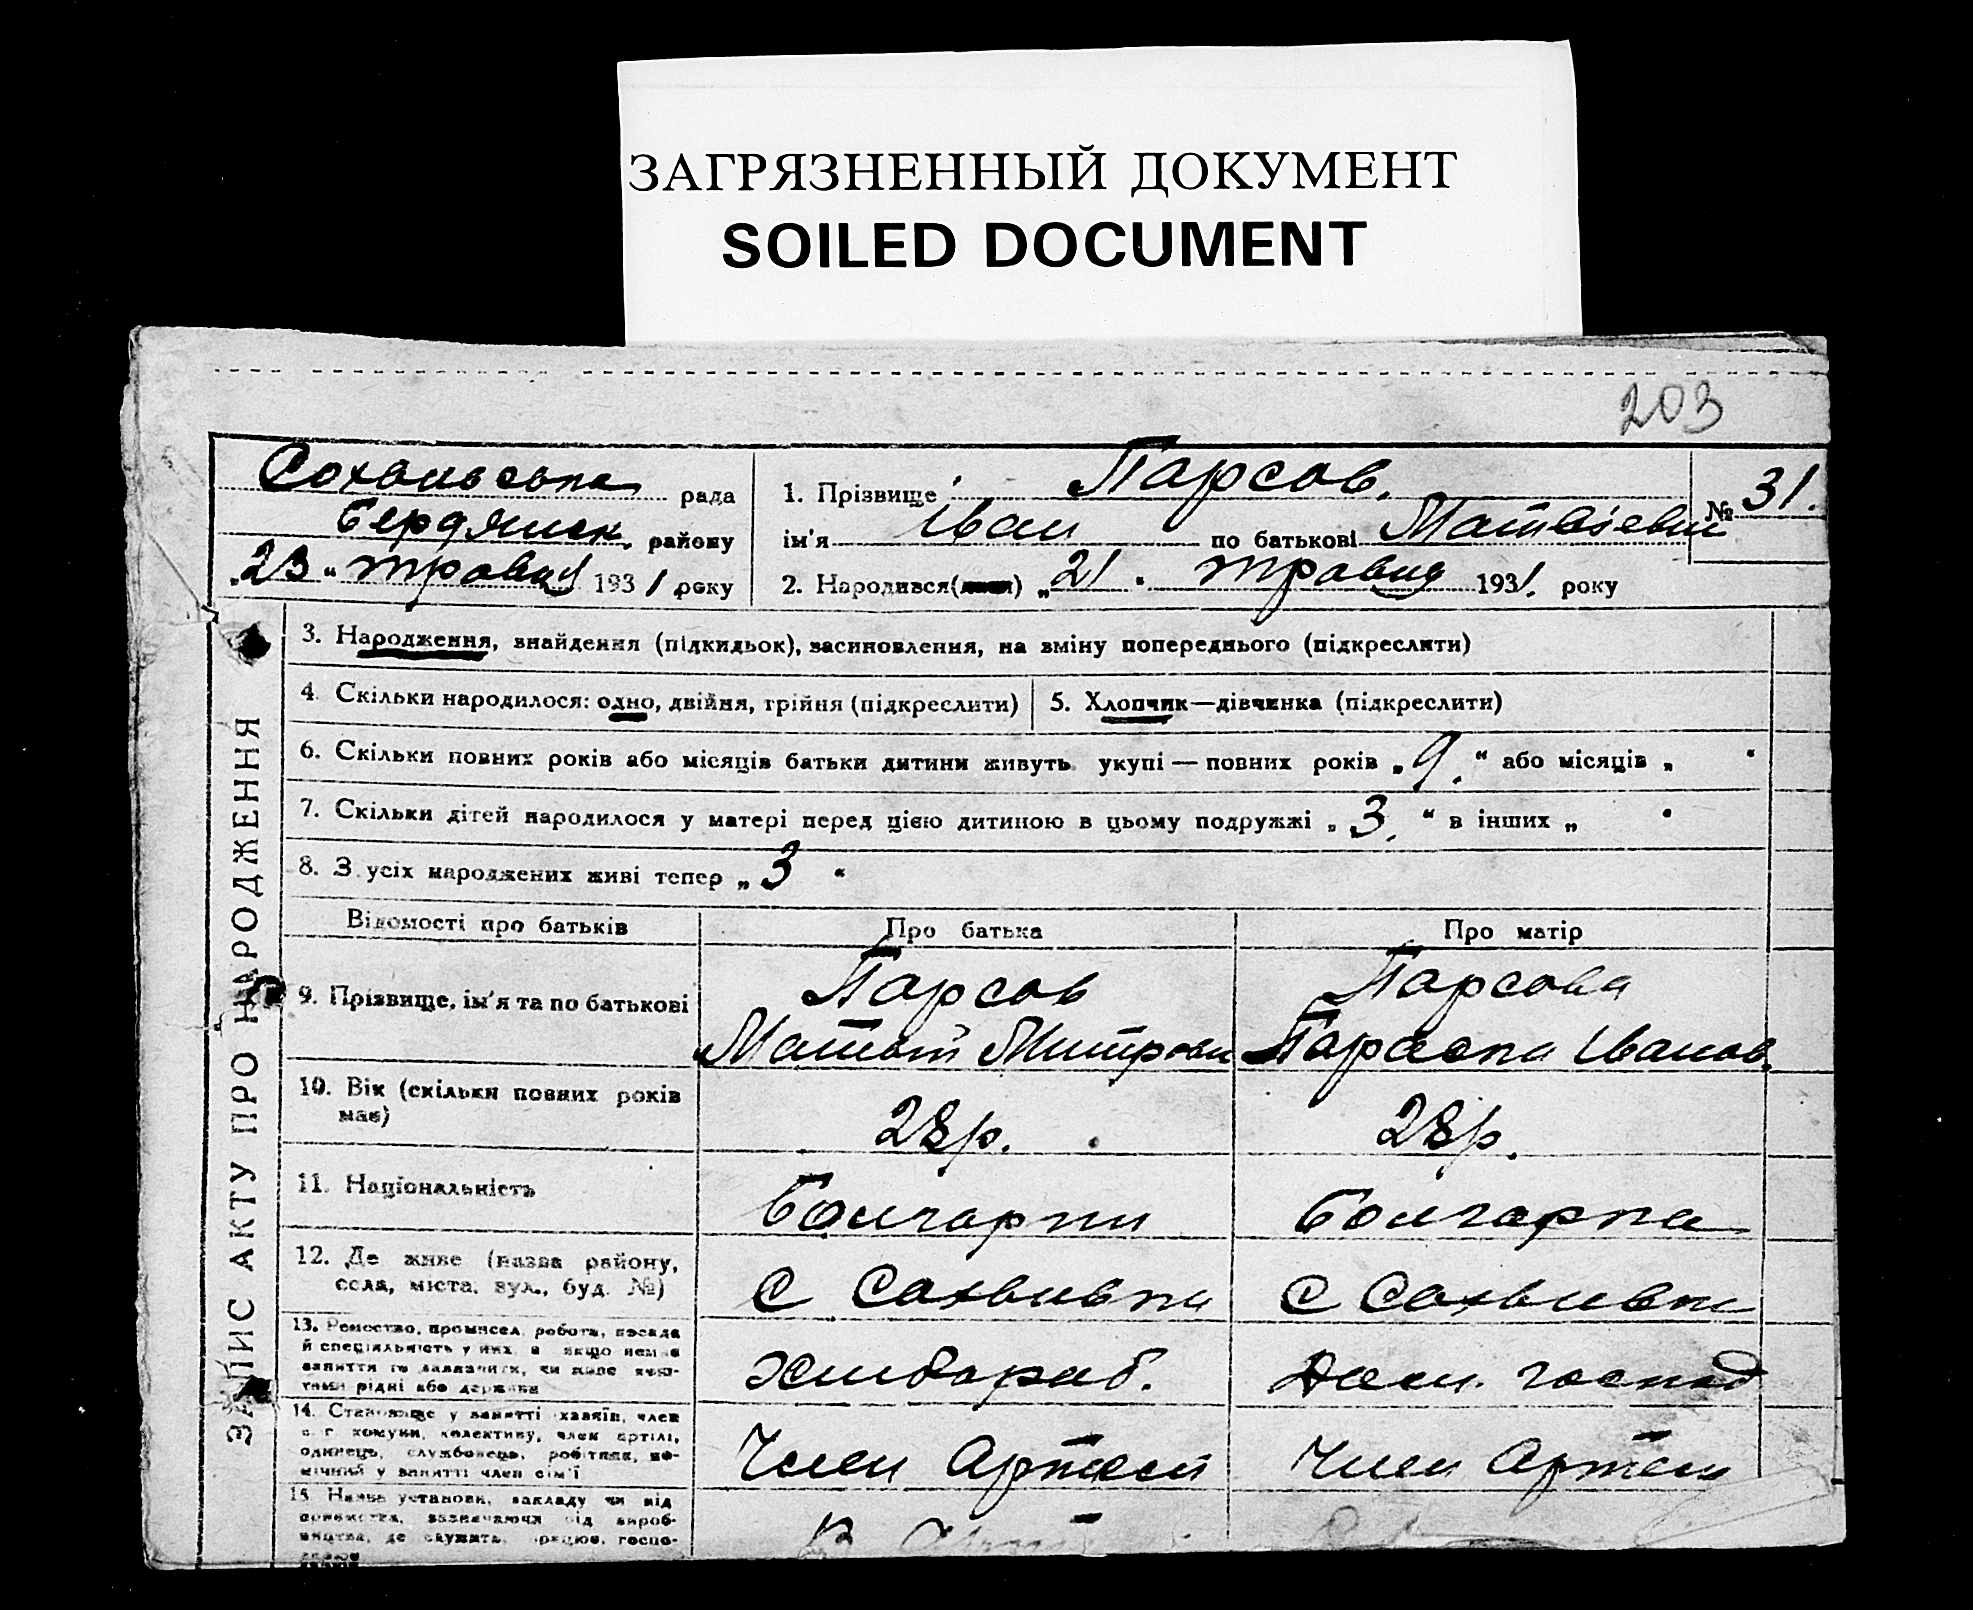 ЗАГРЯЗНЕННЫЙ ДОКУМЕНТ
SOILED DOCUMENT
203
рада
Бердянськ. району
„23“ травня 1931 року
1. Прізвище Парсов.
ім'я Іван по батькові Матвієвич
№ 31.
2. Народився(лася) „21“ травня 1931. року
ЗАПИС АКТУ ПРО НАРОДЖЕННЯ
3. Народження, знайдення (підкидьок), засиновлення, на зміну попереднього (підкреслити)
4. Скільки народилося: одно, двійня, трійня (підкреслити)
5. Хлопчик—дівчинка (підкреслити)
6. Скільки повних років або місяців батьки дитини живуть укупі — повних років „9.“ або місяців „ “
7. Скільки дітей народилося у матері перед цією дитиною в цьому подружжі „3.“ в інших „ “
8. З усіх народжених живі тепер „3“
Відомості про батьків
Про батька
Про матір
9. Прізвище, ім'я та по батькові
Парсов
Парсова
Матвій Митрови
Параска Іванов.
10. Вік (скільки повних років має)
28р.
28р.
11. Національність
Болгарин
Болгарка
12. Де живе (назва району,
села, міста, вул., буд. №)
с
с
13. Ремество, промисел, робота, посада
й спеціяльність у них, а якщо немає
заняття то зазначити, чи живе
рідні або держави
Хлібороб.
Дом. господ
14. Становище у занятті хазяїн, член
с. г. комуни, колективу, член артілі,
одинець, службовець, робітник, по-
мічний у занятті член сім'ї
Член Артелі
Член Артелі
15. Назва установи, закладу чи під
приємства, зазначаючи рід вироб-
ництва, де служить, працює, госпо-